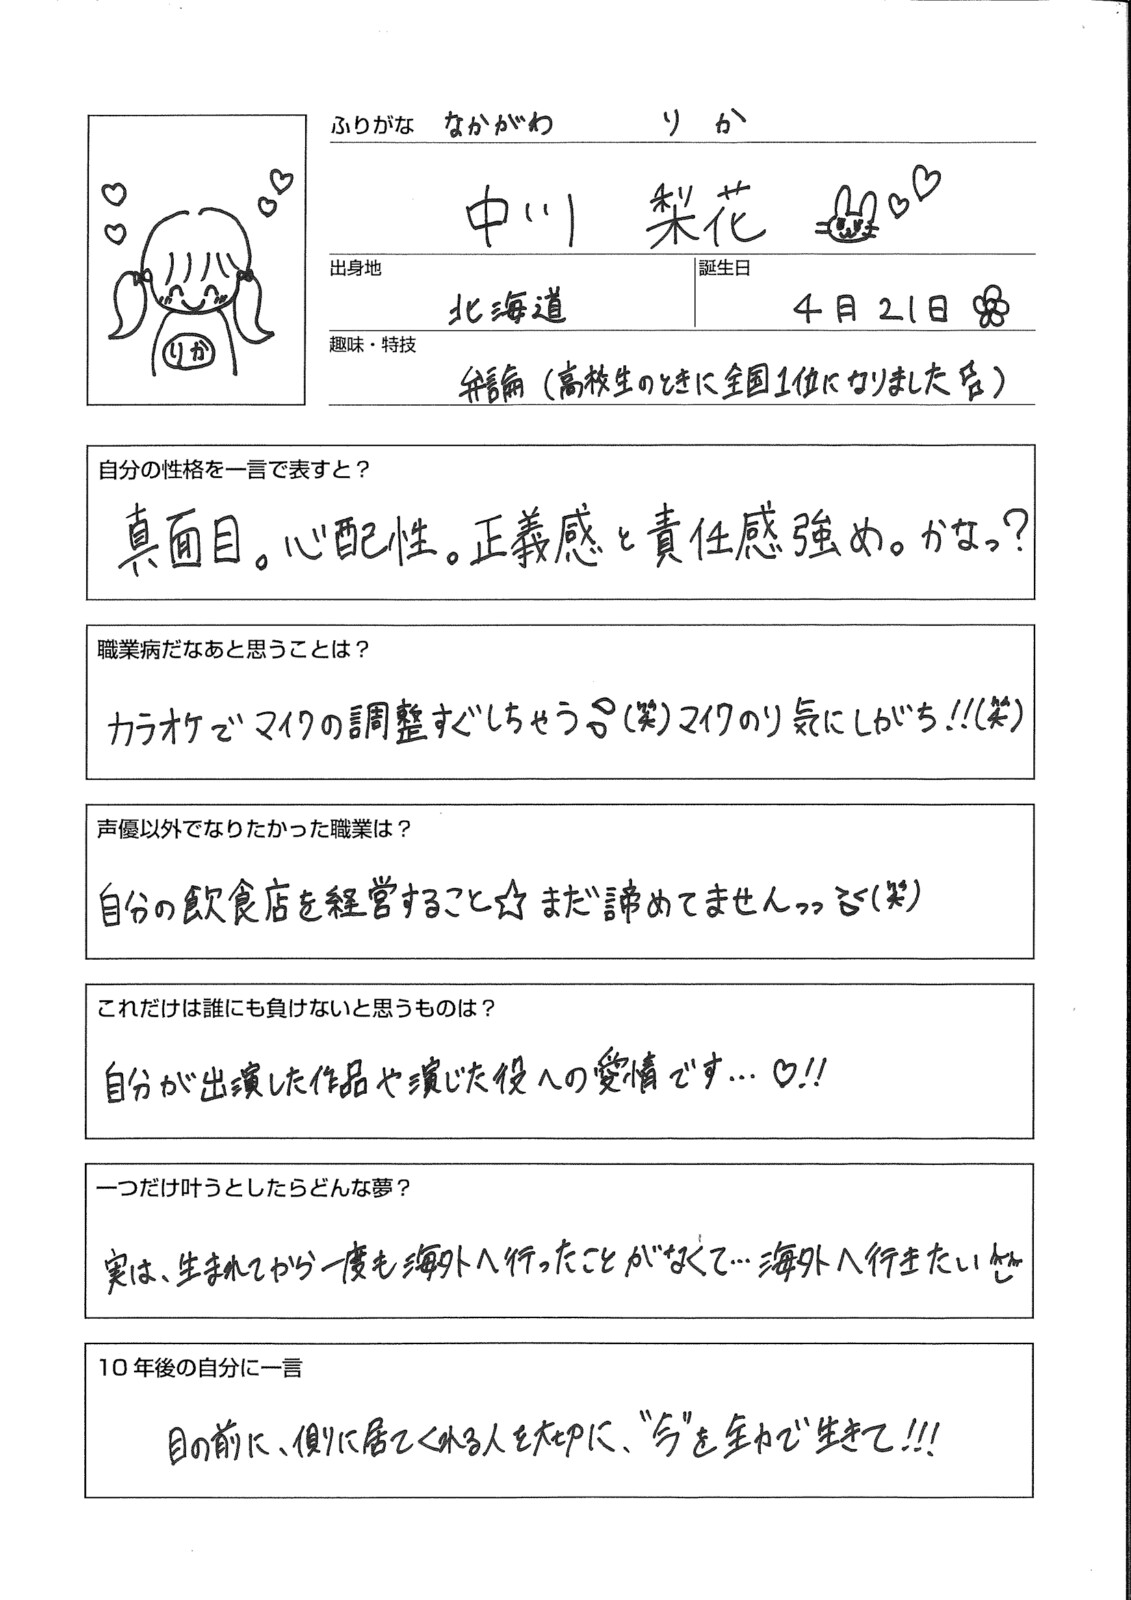 ふりがな なかがわ りか
中川 梨花
出身地
誕生日
北海道
4月21日
りか
趣味・特技
弁論(高校生のときに全国1位になりました)
自分の性格を一言で表すと？
真面目。心配性。正義感と責任感強め。かなっ?
職業病だなあと思うことは？
カラオケでマイクの調整すぐしちゃう(笑)マイクのり気にしがち!!(笑)
声優以外でなりたかった職業は？
自分の飲食店を経営すること☆まだ諦めてませんっっ(笑)
これだけは誰にも負けないと思うものは？
自分が出演した作品や演じた役への愛情です…♡!!
一つだけ叶うとしたらどんな夢？
実は、生まれてから一度も海外へ行ったことがなくて…海外へ行きたい
10年後の自分に一言
目の前に、側に居てくれる人を大切に、"今"を全力で生きて!!!